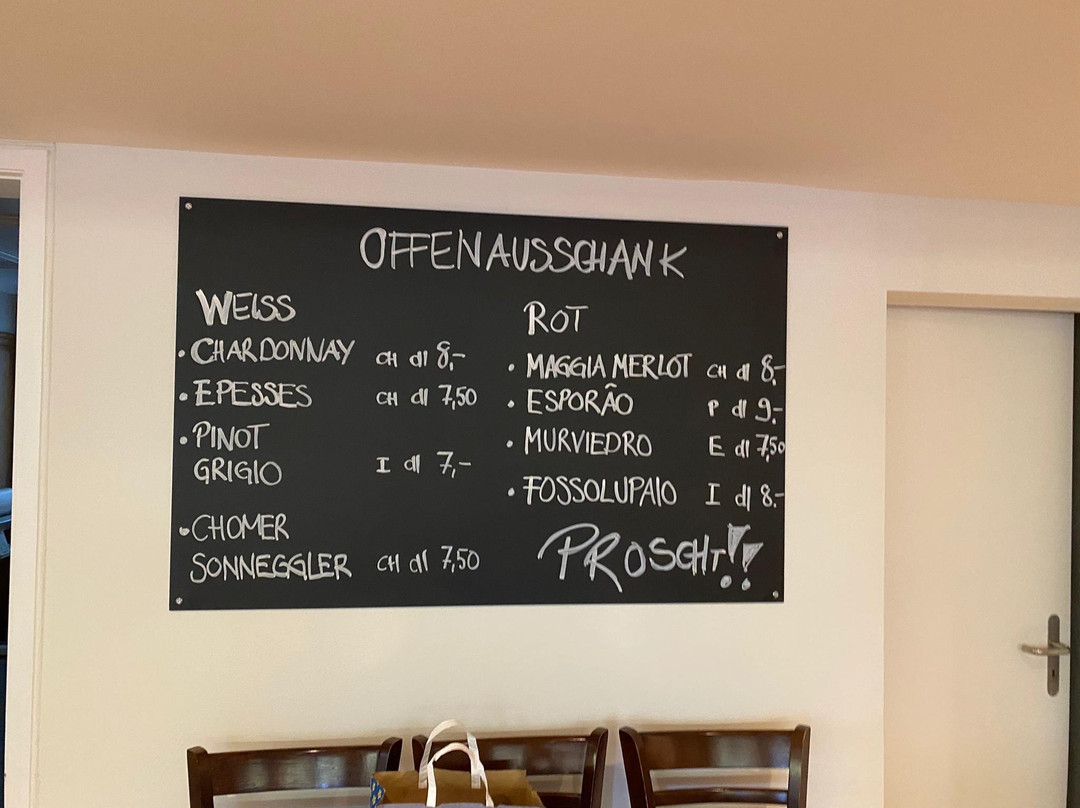 OFFENAUSSCHANK
WEISS
• CHARDONNAY CH dl 8,-
• EPESSES CH dl 7,50
• PINOT
GRIGIO I dl 7,-
• CHOMER
SONNEGGLER CH dl 7,50
ROT
• MAGGIA MERLOT CH dl 8,-
• ESPORÃO P dl 9,-
• MURVIEDRO E dl 7,50
• FOSSOLUPAIO I dl 8,-
PROSCHT!!